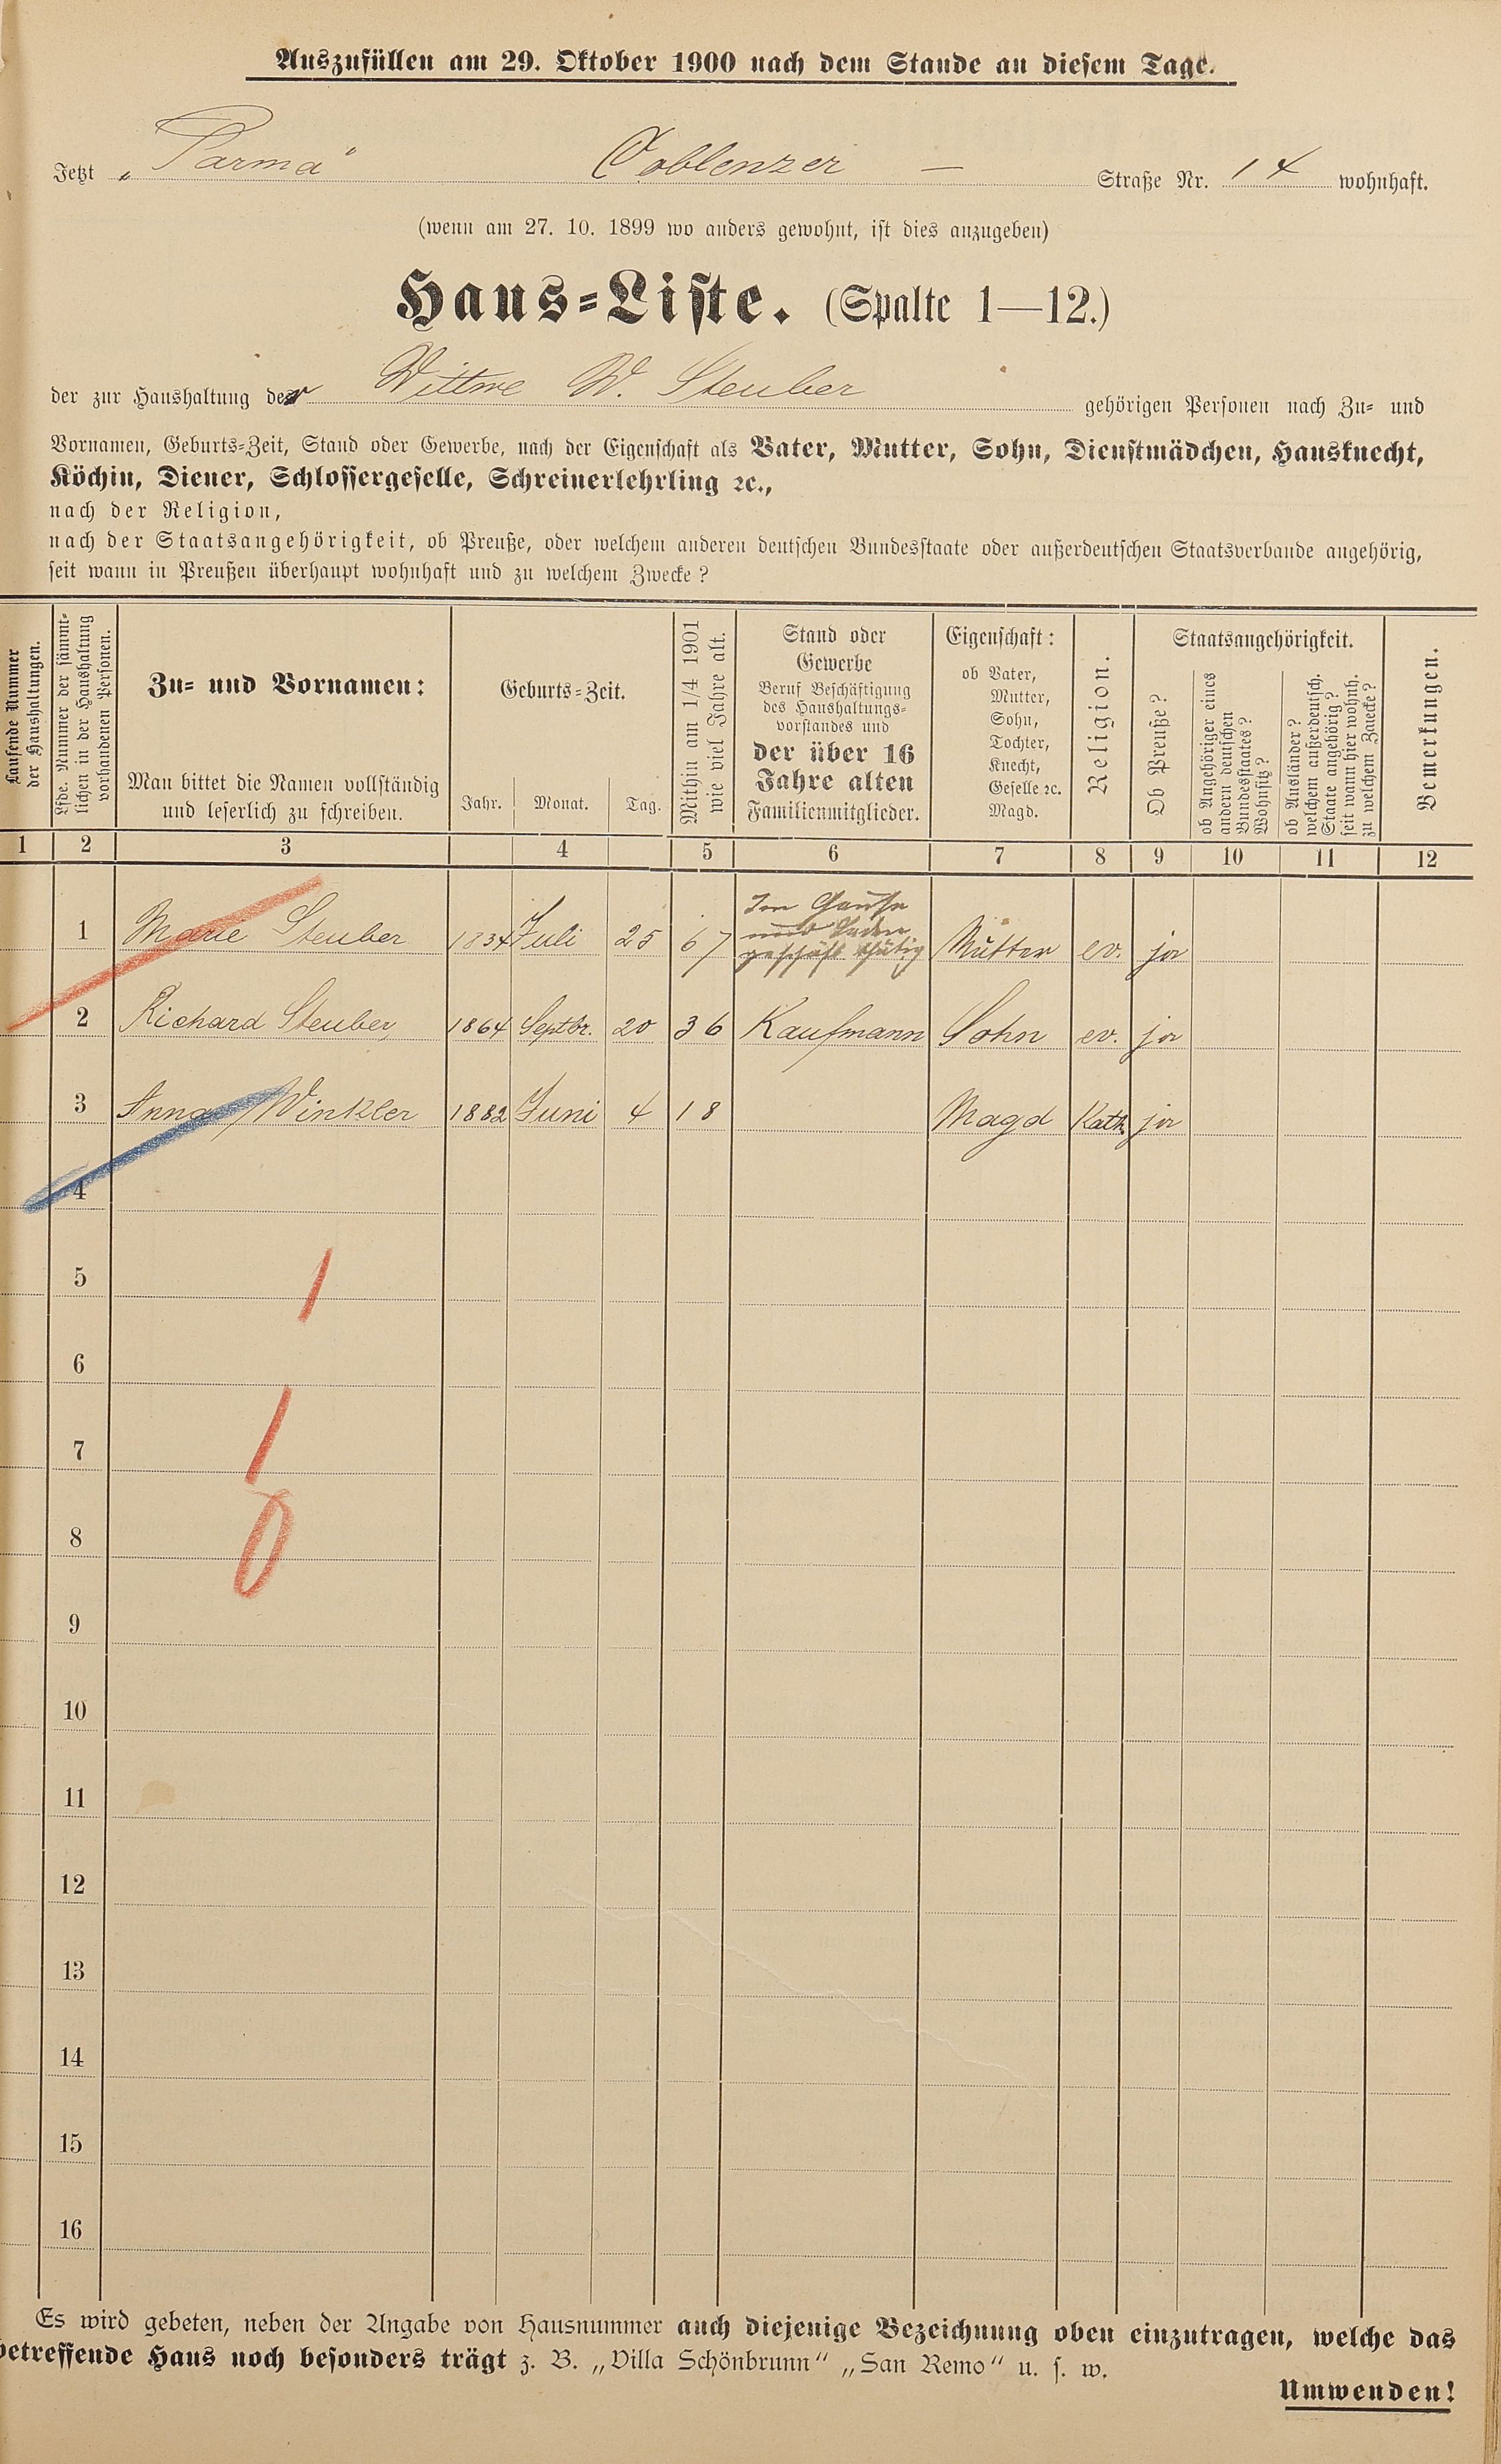 Auszufüllen am 29. Oktober 1900 nach dem Stande an diesem Tage.
Jetzt „Parma" Coblenzer – Straße Nr. 14 wohnhaft.
(wenn am 27. 10. 1899 wo anders gewohnt, ist dies anzugeben)
Haus-Liste. (Spalte 1—12.)
der zur Haushaltung der Wittwe W. Steuber gehörigen Personen nach Zu- und
Vornamen, Geburts-Zeit, Stand oder Gewerbe, nach der Eigenschaft als Vater, Mutter, Sohn, Dienstmädchen, Hausknecht,
Köchin, Diener, Schlossergeselle, Schreinerlehrling ꝛc.,
nach der Religion,
nach der Staatsangehörigkeit, ob Preuße, oder welchem anderen deutschen Bundesstaate oder außerdeutschen Staatsverbande angehörig,
seit wann in Preußen überhaupt wohnhaft und zu welchem Zwecke?
Laufende Nummer
der Haushaltungen.
Lfde. Nummer der sämmt-
lichen in der Haushaltung
vorhandenen Personen.
Zu- und Vornamen:
Man bittet die Namen vollständig
und leserlich zu schreiben.
Geburts-Zeit.
Jahr. Monat. Tag.
Mithin am 1/4 1901
wie viel Jahre alt.
Stand oder
Gewerbe
Beruf Beschäftigung
des Haushaltungs-
vorstandes und
der über 16
Jahre alten
Familienmitglieder.
Eigenschaft:
ob Vater,
Mutter,
Sohn,
Tochter,
Knecht,
Geselle ꝛc.
Magd.
Religion.
Staatsangehörigkeit.
Ob Preuße?
ob Angehöriger eines
andern deutschen
Bundesstaates?
Wohnsitz?
ob Ausländer?
welchem außerdeutsch.
Staate angehörig?
seit wann hier wohnh.
zu welchem Zwecke?
Bemerkungen.
1 2 3 4 5 6 7 8 9 10 11 12
Im Hause
und Laden
geschäft thätig
1 Marie Steuber 1834 Juli 25 67 Mutter ev. ja
2 Richard Steuber 1864 Septbr. 20 36 Kaufmann Sohn ev. ja
3 Anna Winkler 1882 Juni 4 18 Magd Kath. ja
4
5
1
6
7
1
8
0
9
10
11
12
13
14
15
16
Es wird gebeten, neben der Angabe von Hausnummer auch diejenige Bezeichnung oben einzutragen, welche das
betreffende Haus noch besonders trägt z. B. „Villa Schönbrunn" „San Remo" u. s. w.
Umwenden!